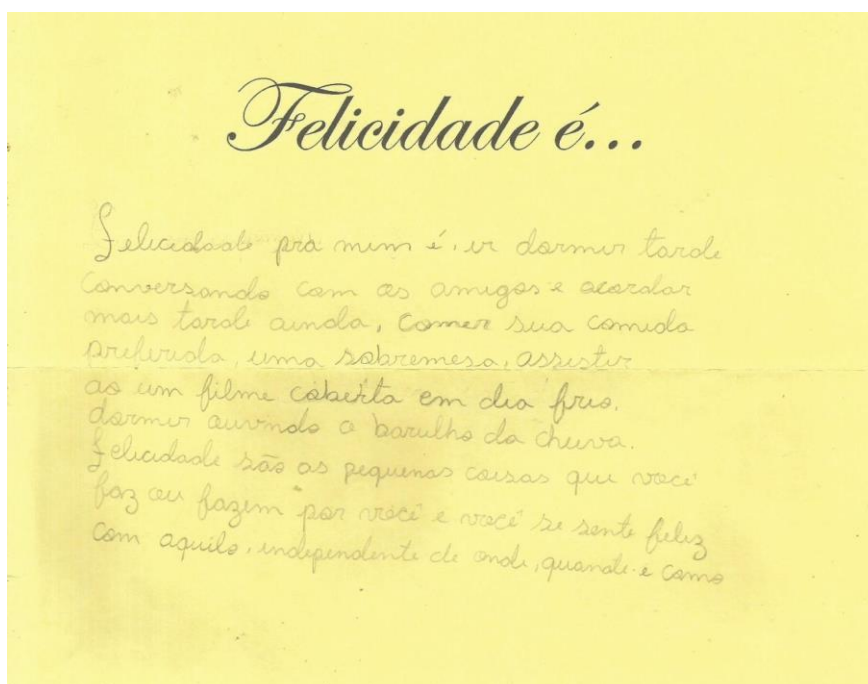 Felicidade é...
Felicidade pra mim é, ir dormir tarde
conversando com os amigos e acordar
mais tarde ainda, comer sua comida
preferida, uma sobremesa, assistir
ao um filme coberta em dia frio,
dormir ouvindo o barulho da chuva.
Felicidade são as pequenas coisas que você
faz ou fazem por você e você se sente feliz
com aquilo, independente de onde, quando e como